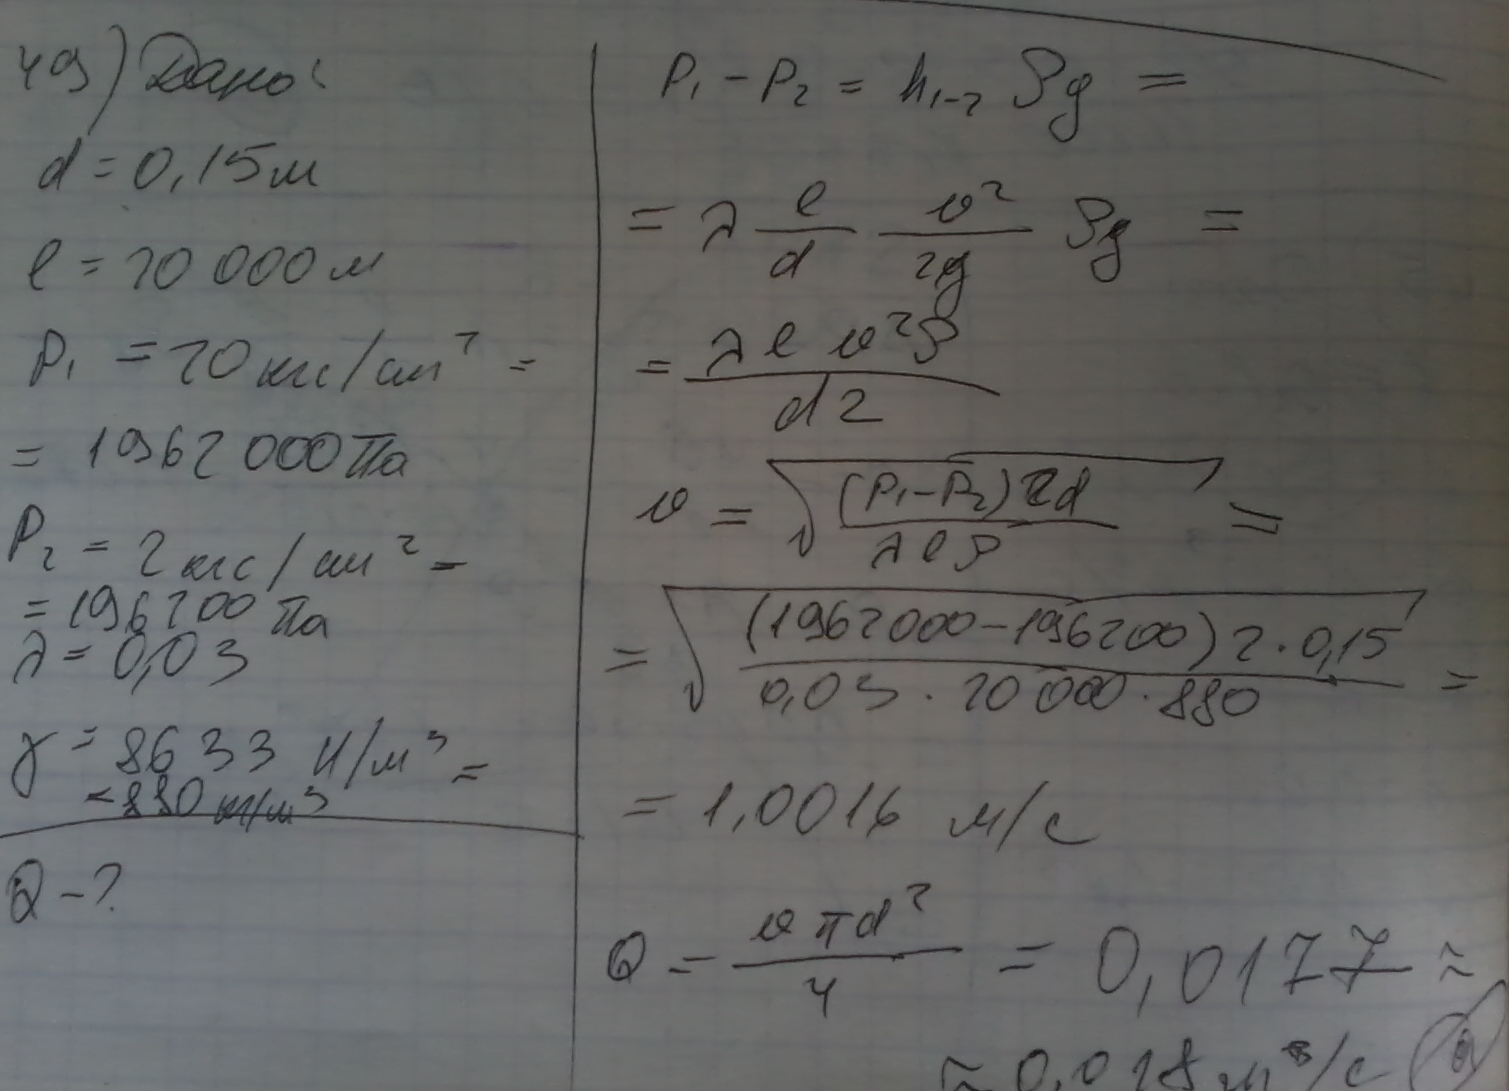 49) Дано:
d = 0,15м
l = 20 000 м
P₁ = 20 кгс/см² =
= 1962 000 Па
P₂ = 2 кгс/см² =
= 196200 Па
λ = 0,03
γ = 8633 Н/м³ =
= 880 кг/м³
Q - ?
P₁ - P₂ = h₁₋₂ ρg =
= λ l/d v²/2g ρg =
= λ l v² ρ / d 2
v = √((P₁-P₂) 2d / λ l ρ) =
= √((1962000-196200) 2 · 0,15 / 0,03 · 20 000 · 880) =
= 1,0016 м/с
Q = v π d² / 4 = 0,0177 ≈
≈ 0,018 м³/с